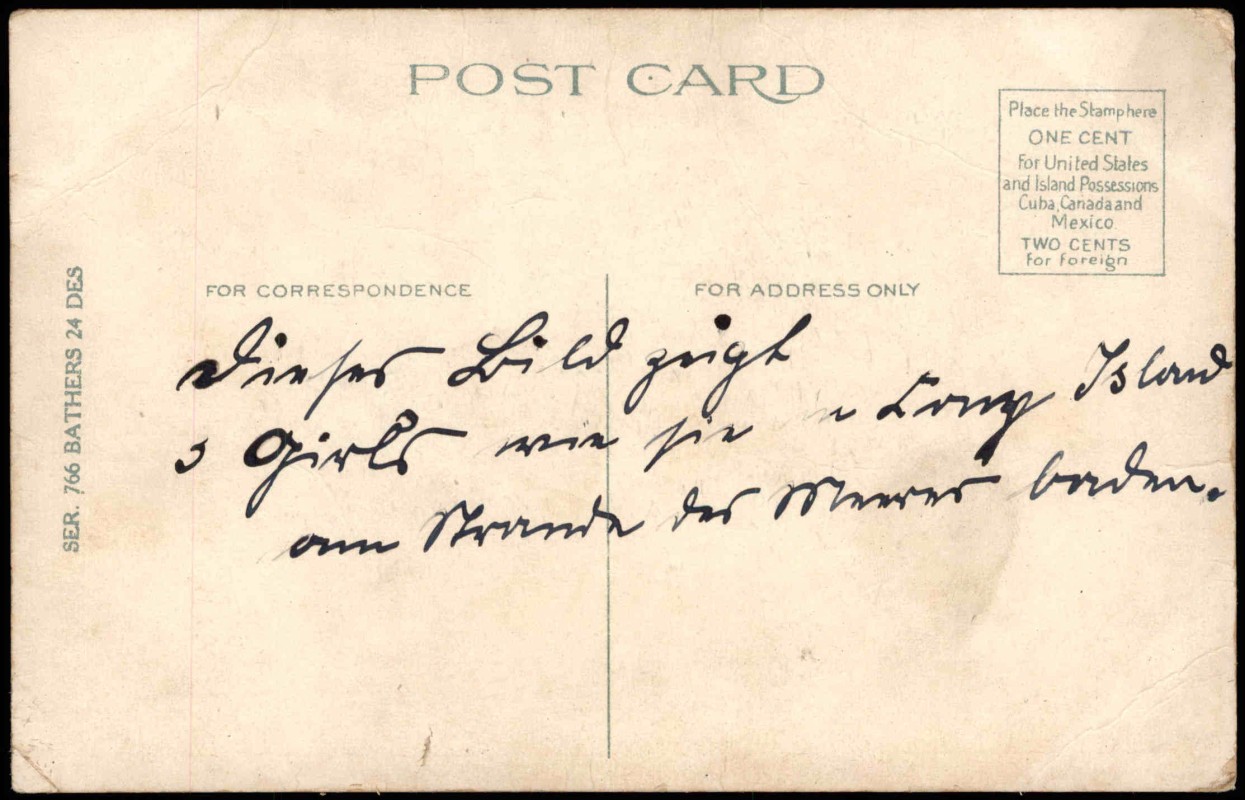 POST CARD
Place the Stamp here
ONE CENT
For United States
and Island Possessions
Cuba, Canada and
Mexico
TWO CENTS
For Foreign
FOR CORRESPONDENCE
FOR ADDRESS ONLY
SER. 766 BATHERS 24 DES
Dieses Bild zeigt
3 Girls wie sie n Cony Island
am Strande des Meeres baden.